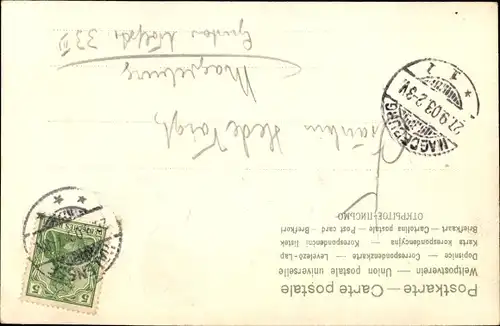 Postkarte — Carte postale
Weltpostverein — Union postale universelle
Dopisnice — Correspondenzkarte — Levelező-Lap
Karta korespondencyjna — Korespondenčni listek
Briefkaart — Cartolina postale — Post card — Brefkort
ОТКРЫТОЕ-ПИСЬМО
Fräulein Hede Voigt,
Magdeburg
33 II
MAGDEBURG
27.9.03.2-3V.
* 1 1
5 5